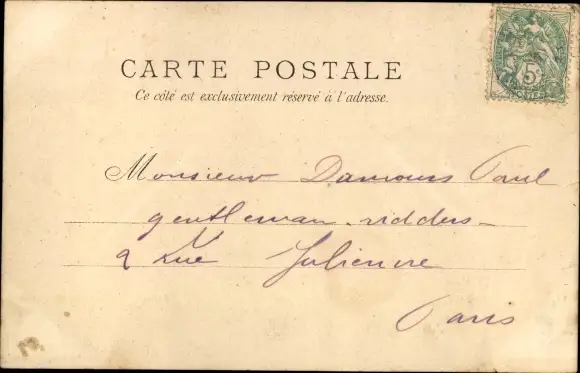 CARTE POSTALE
Ce côté est exclusivement réservé à l'adresse.
5c
Monsieur Damours Paul
gentleman-ridders-
2 Rue Julienne
Paris